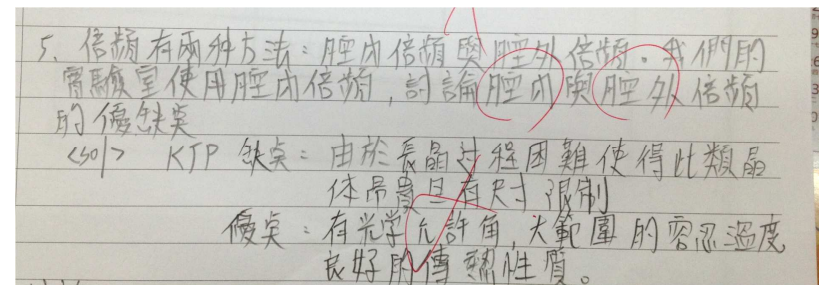 5. 倍頻有兩种方法：腔内倍頻與腔外倍頻。我們的
實驗室使用腔内倍頻，討論腔内與腔外倍頻
的優缺奌
<sol> KTP 缺奌：由於長晶过程困難使得此類晶
体昂貴且有尺寸限制
優奌：有光学允許角，大範圍的容忍溫度
良好的傳熱性質。